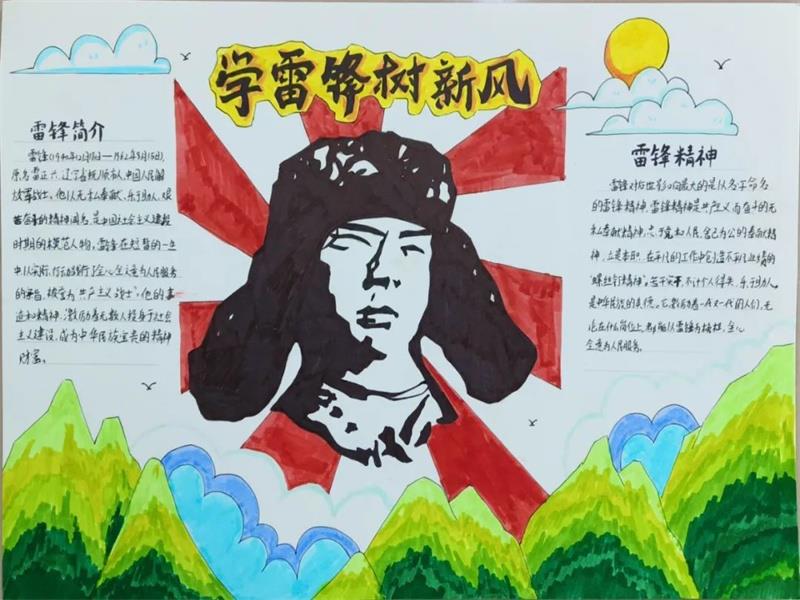 学雷锋树新风
雷锋简介
雷锋(1940年12月18日—1962年8月15日),
原名雷正兴,辽宁省抚顺市人,中国人民解
放军战士。他以无私奉献、乐于助人、艰
苦奋斗的精神闻名,是中国社会主义建设
时期的模范人物,雷锋在短暂的一生
中以实际行动践行了全心全意为人民服务
的誓言,被誉为"共产主义战士",他的事
迹和精神,激励着无数人投身于社会
主义建设,成为中华民族宝贵的精神
财富。
雷锋精神
雷锋对后世影响最大的是以名字命名
的雷锋精神,雷锋精神是共产主义而奋斗的无
私奉献精神,忠于党和人民、舍己为公的奉献精
神,立足本职、在平凡的工作中创造不平凡业绩的
"螺丝钉精神",苦干实干、不计个人得失、乐于助人,
是中华民族的美德。它激励着一代又一代的人们,无
论在什么岗位上,都能以雷锋为榜样,全心
全意为人民服务。